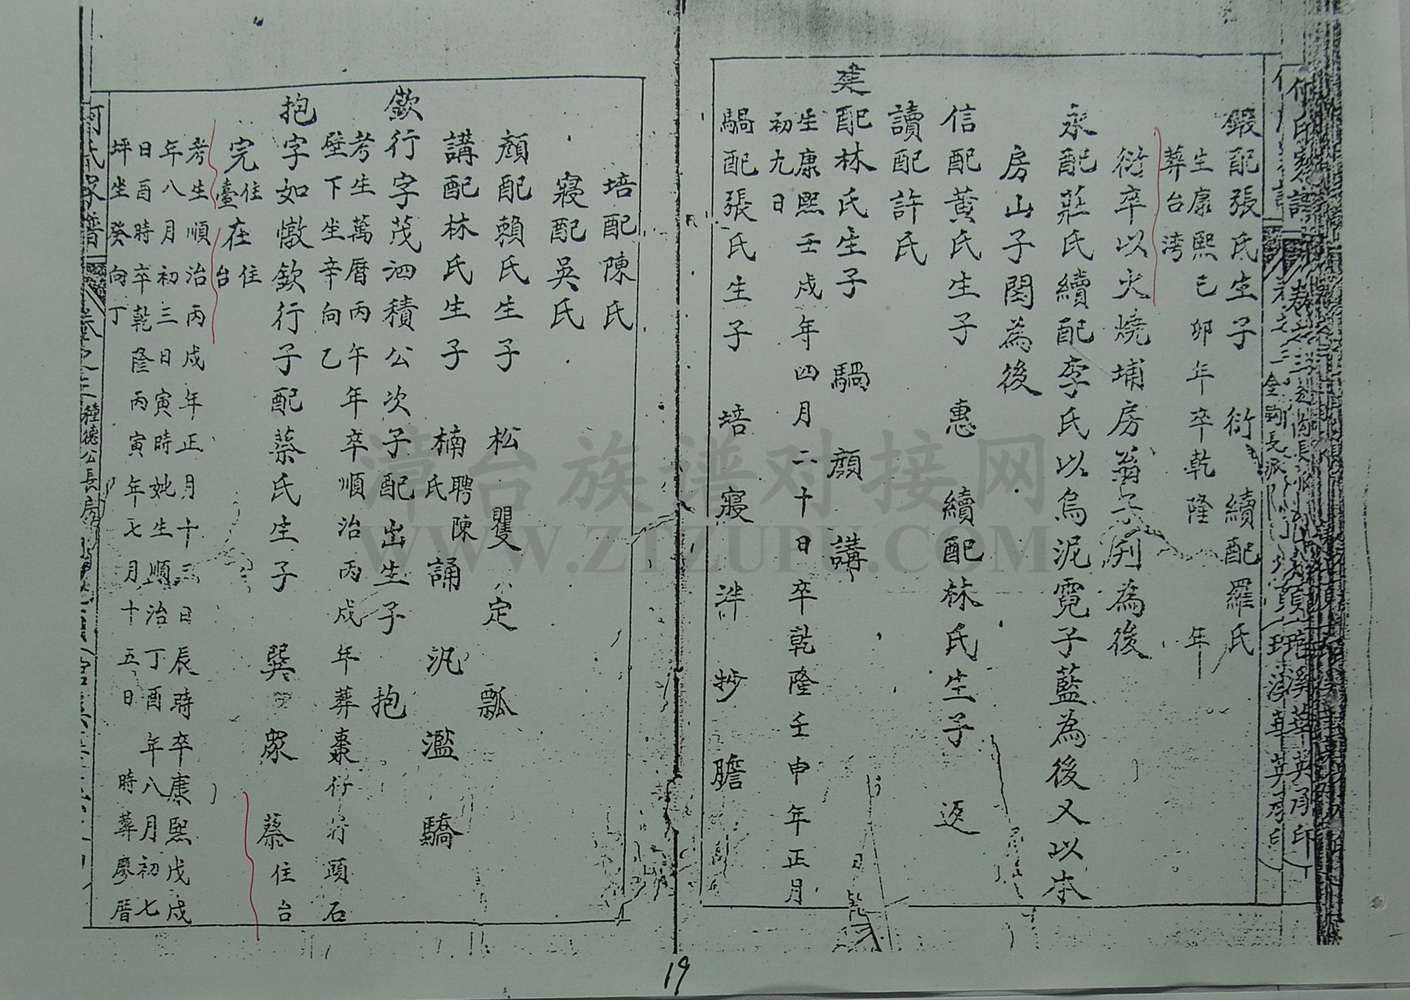 鍛配張氏生子 衍 續配羅氏
生康熙己卯年卒乾隆 年
葬台湾
衍卒以火燒埔房翁子列為後
永配莊氏續配李氏以烏泥霓子藍為後又以本
房山子閏為後
信配黄氏生子 惠 續配林氏生子 返
讀配許氏
建配林氏生子 騧 顔 講
生康熙壬戌年四月二十日卒乾隆壬申年正月
初九日
騧配張氏生子 培 寢 泮 抄 膽
培配陳氏
寢配吳氏
顔配賴氏生子 松 瞿 定 瓢
講配林氏生子 楠聘陳氏 誦 汎 濫 驕
欽行字茂泗積公次子配出生子 抱
考生萬曆丙午年卒順治丙戌年葬棗仔行頭石
壁下坐辛向乙
抱字如懒欽行子配蔡氏生子 巽 眾 蔡住台
完住臺 在住台
考生順治丙戌年正月十三日辰時卒康熙戊戌
年八月初三日寅時妣生順治丁酉年八月初七
日酉時卒乾隆丙寅年七月十五日 時葬廖厝
坪坐癸向丁
何氏家譜 卷之三 種德公長房
19
漳台族谱对接网
WWW.ZTZUPU.COM